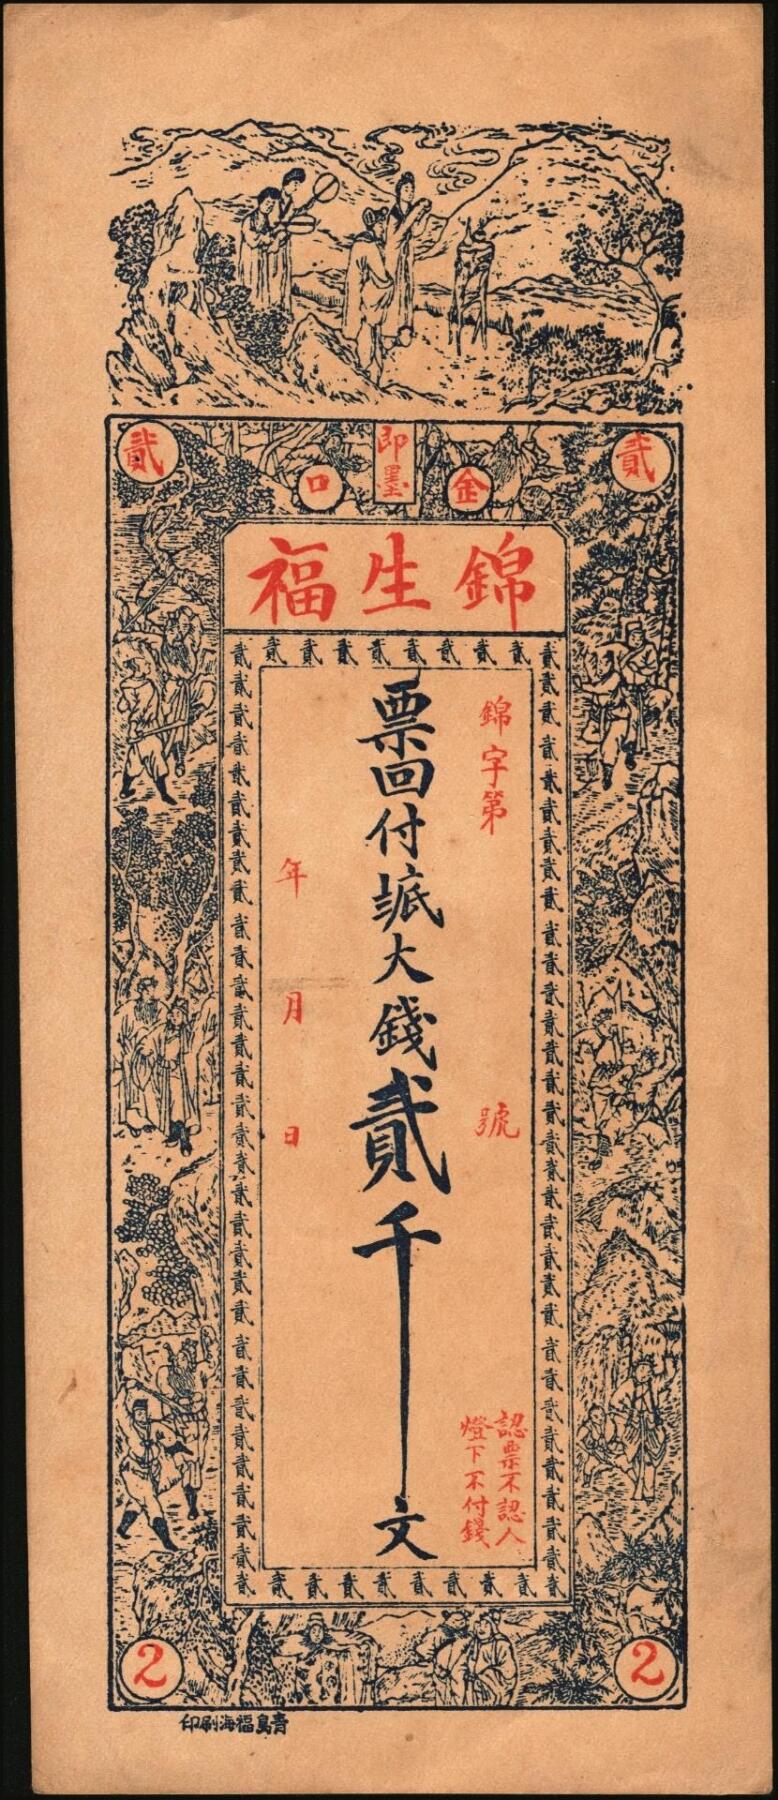 貳
貳
即墨
金口
錦生福
貳貳貳貳貳貳貳貳貳貳
錦字第 號
認票不認人
燈下不付錢
票回付 大錢貳千文
年 月 日
2
2
青島福海刷印